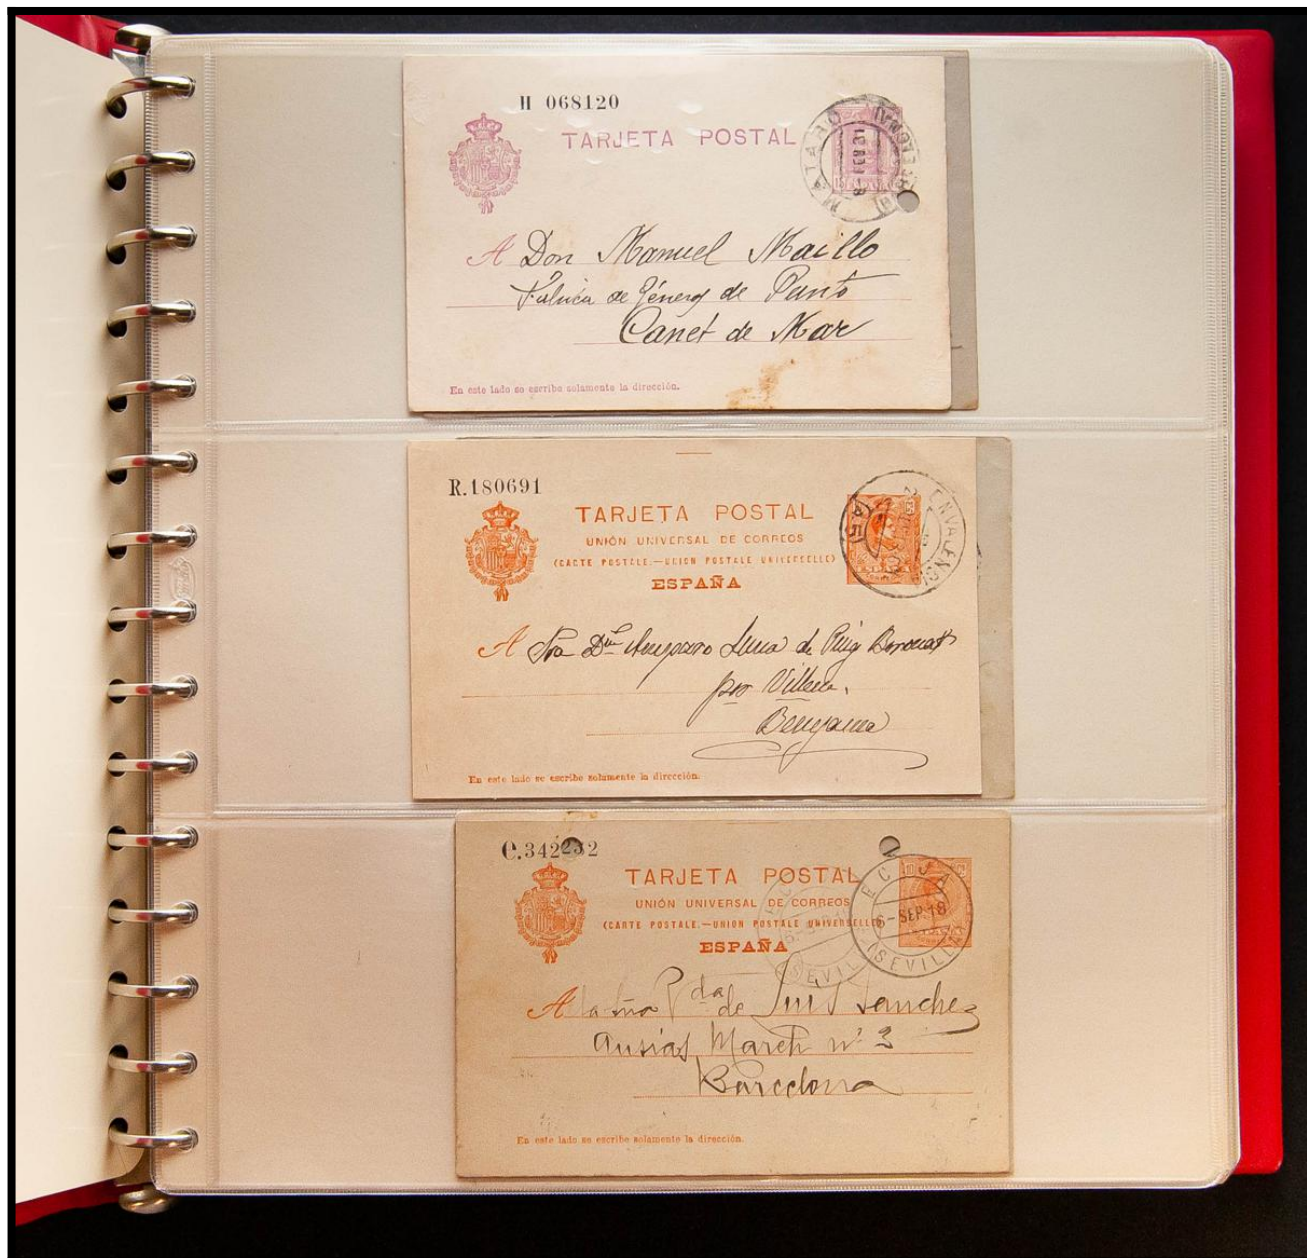 H 068120
TARJETA POSTAL
MATARO
(BARCELONA)
A Don Manuel Maillo
Fábrica de Géneros de Punto
Canet de Mar
En este lado se escribe solamente la dirección.
R.180691
TARJETA POSTAL
UNIÓN UNIVERSAL DE CORREOS
(CARTE POSTALE.—UNION POSTALE UNIVERSELLE)
ESPAÑA
A Sra Dña Amparo Luna de Puig Boronat
por Villena.
Benejama
En este lado se escribe solamente la dirección.
C.342232
TARJETA POSTAL
UNIÓN UNIVERSAL DE CORREOS
(CARTE POSTALE.—UNION POSTALE UNIVERSELLE)
ESPAÑA
ECIJA
6-SEP.18
(SEVILLA)
A la Sra Vda de Luis Sanchez
Ausias March nº 3
Barcelona
En este lado se escribe solamente la dirección.